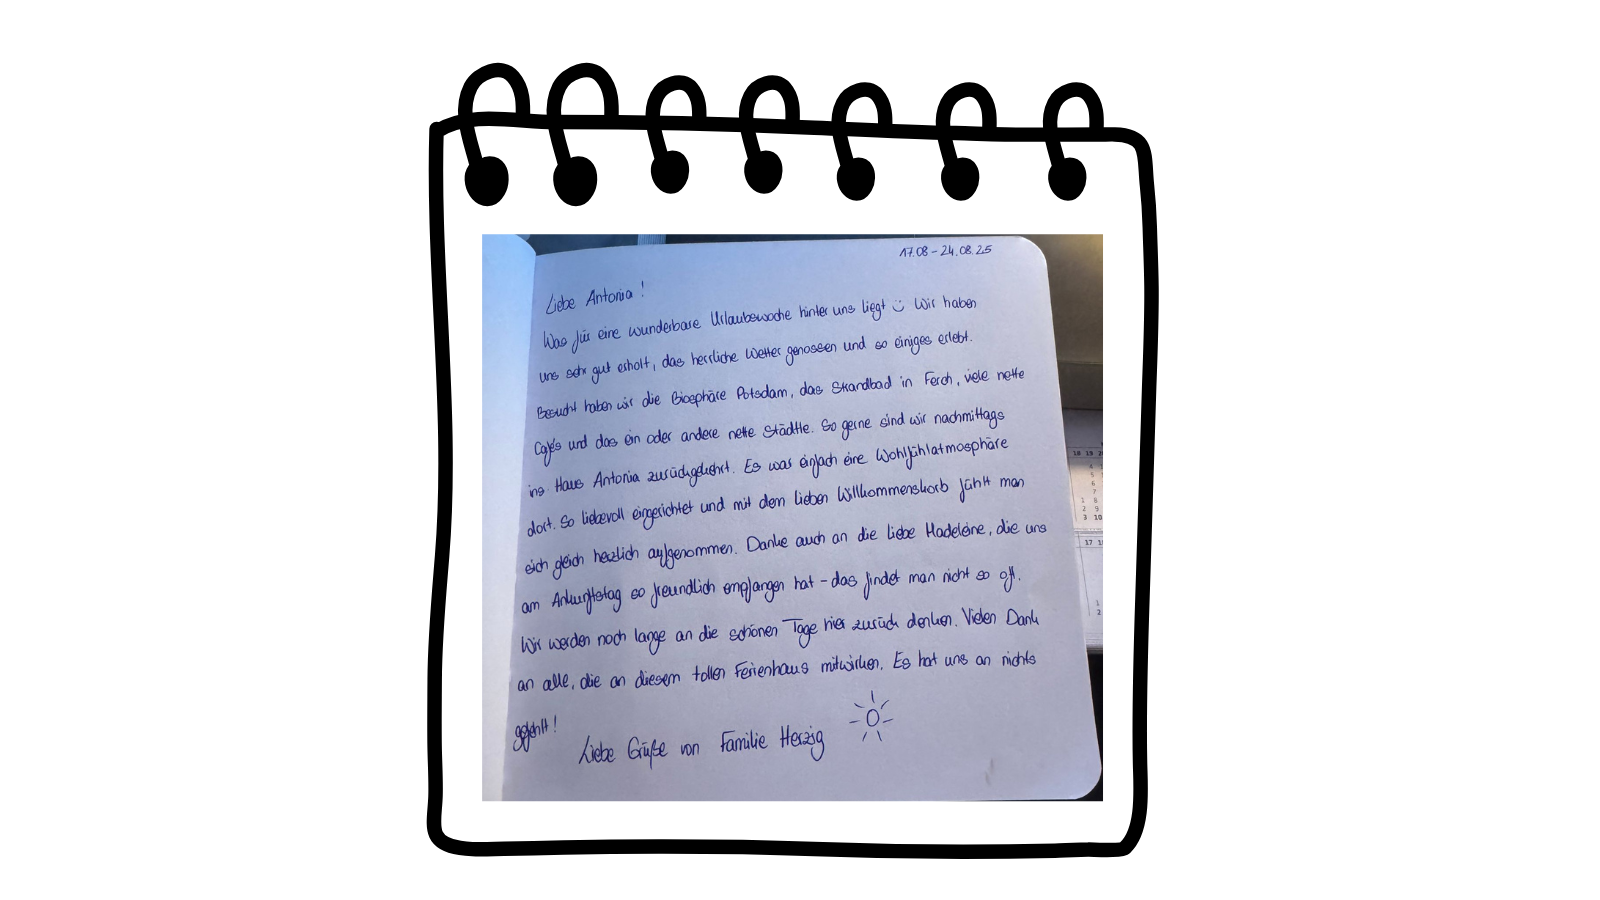 17.08 – 24.08.25
Liebe Antonia!
Was für eine wunderbare Urlaubswoche hinter uns liegt ☺ Wir haben
uns sehr gut erholt, das herrliche Wetter genossen und so einiges erlebt.
Besucht haben wir die Biosphäre Potsdam, das Strandbad in Ferch, viele nette
Cafés und das ein oder andere nette Städtle. So gerne sind wir nachmittags
ins Haus Antonia zurückgekehrt. Es war einfach eine Wohlfühlatmosphäre
dort. So liebevoll eingerichtet und mit dem lieben Willkommenskorb fühlt man
sich gleich herzlich aufgenommen. Danke auch an die liebe Madeleine, die uns
am Ankunftstag so freundlich empfangen hat – das findet man nicht so oft.
Wir werden noch lange an die schönen Tage hier zurück denken. Vielen Dank
an alle, die an diesem tollen Ferienhaus mitwirken. Es hat uns an nichts
gefehlt!
Liebe Grüße von Familie Herzig